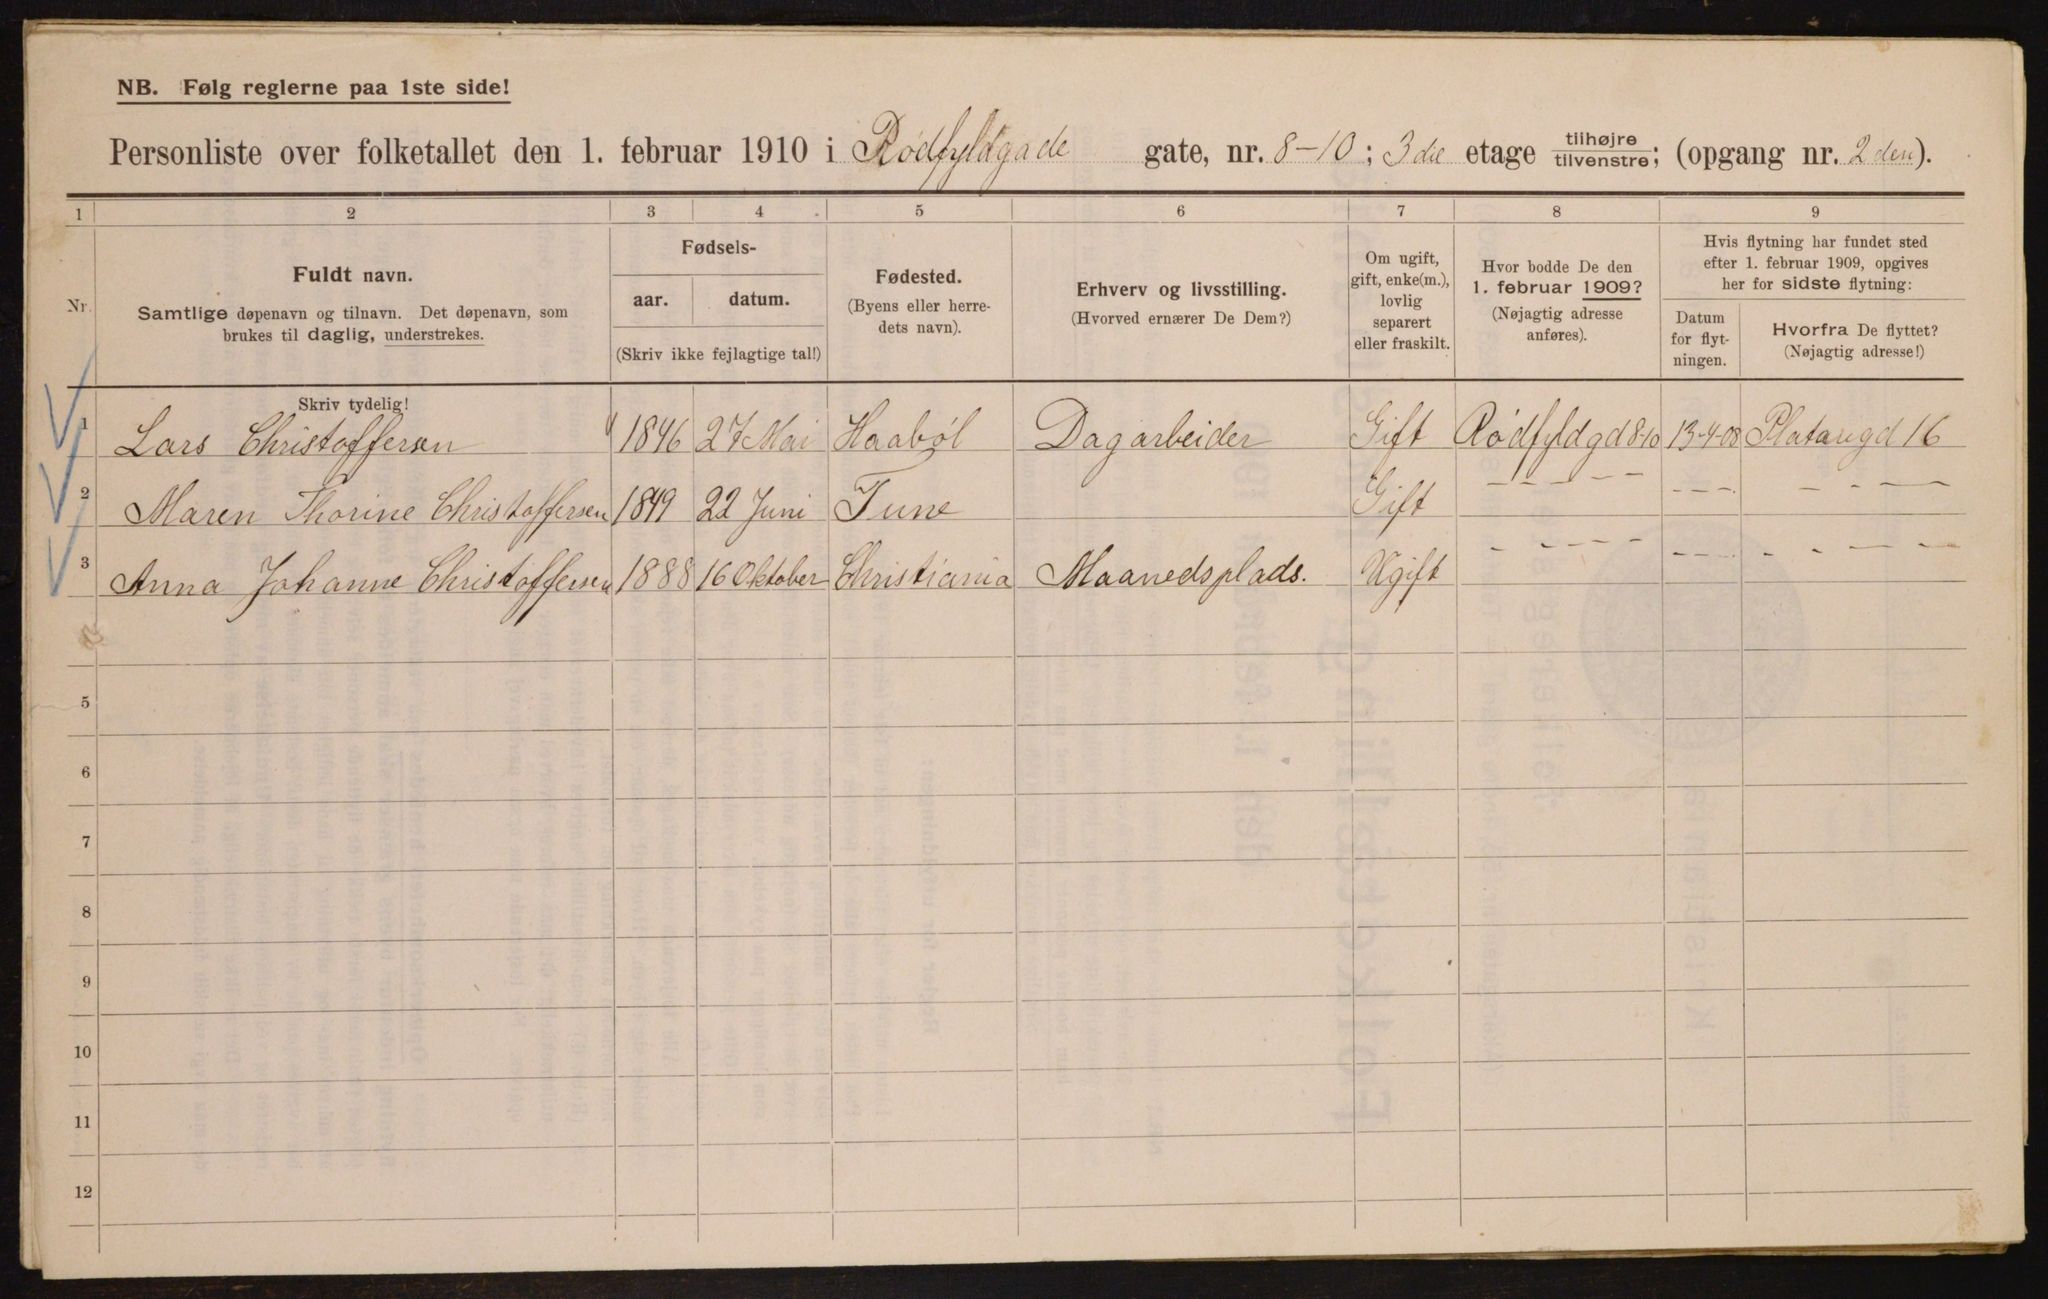 NB. Følg reglerne paa 1ste side!
Personliste over folketallet den 1. februar 1910 i Rødfyldgade gate, nr. 8-10; 3die etage tilhøjre / tilvenstre; (opgang nr. 2den).
1 2 3 4 5 6 7 8 9
Nr.
Fuldt navn.
Samtlige døpenavn og tilnavn. Det døpenavn, som
brukes til daglig, understrekes.
Fødsels-
aar. datum.
(Skriv ikke fejlagtige tal!)
Fødested.
(Byens eller herre-
dets navn).
Erhverv og livsstilling.
(Hvorved ernærer De Dem?)
Om ugift,
gift, enke(m.),
lovlig
separert
eller fraskilt.
Hvor bodde De den
1. februar 1909?
(Nøjagtig adresse
anføres).
Hvis flytning har fundet sted
efter 1. februar 1909, opgives
her for sidste flytning:
Datum
for flyt-
ningen.
Hvorfra De flyttet?
(Nøjagtig adresse!)
Skriv tydelig!
1 Lars Christoffersen 1846 27 Mai Haabøl Dagarbeider Gift Rødfyldgd 8-10 13-4-08 Platousgd 16
2 Maren Thorine Christoffersen 1849 22 Juni Tune Gift - - - - - - - - - - - -
3 Anna Johanne Christoffersen 1888 16 Oktober Christiania Maanedsplads. Ugift - - - - - - - - - - - - -
5
6
7
8
9
10
11
12